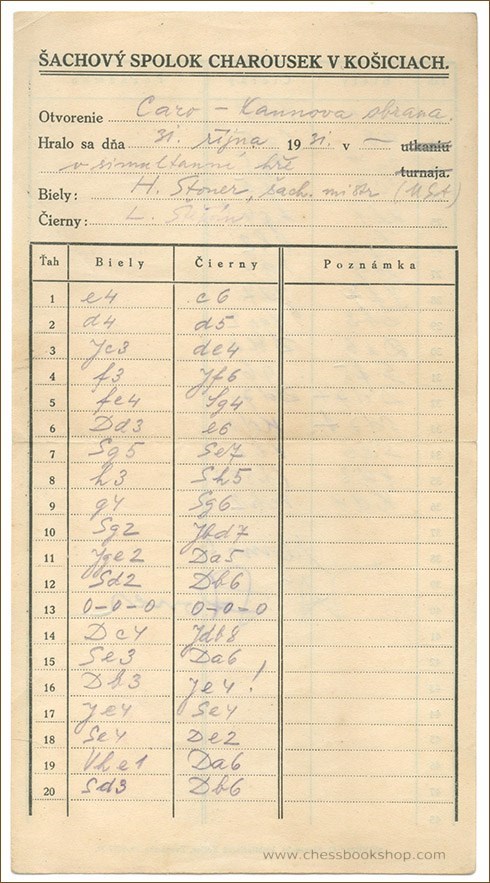 ŠACHOVÝ SPOLOK CHAROUSEK V KOŠICIACH.
Otvorenie Caro – Kannova obrana.
Hralo sa dňa 31. října 1931. v — utkaniu
v simultanní hře turnaja.
Biely: H. Stoner, šach. mistr (USA)
Čierny: L.
Ťah Biely Čierny Poznámka
1 e4 c6
2 d4 d5
3 Jc3 de4
4 f3 Jf6
5 fe4 Sg4
6 Dd3 e6
7 Sg5 Se7
8 h3 Sh5
9 g4 Sg6
10 Sg2 Jbd7
11 Jge2 Da5
12 Sd2 Db6
13 0-0-0 0-0-0
14 Dc4 Jdb8
15 Se3 Da6
16 Db3 Je4!
17 Je4 Se4
18 Se4 De2
19 Vhe1 Da6
20 Sd3 Db6
www.chessbookshop.com